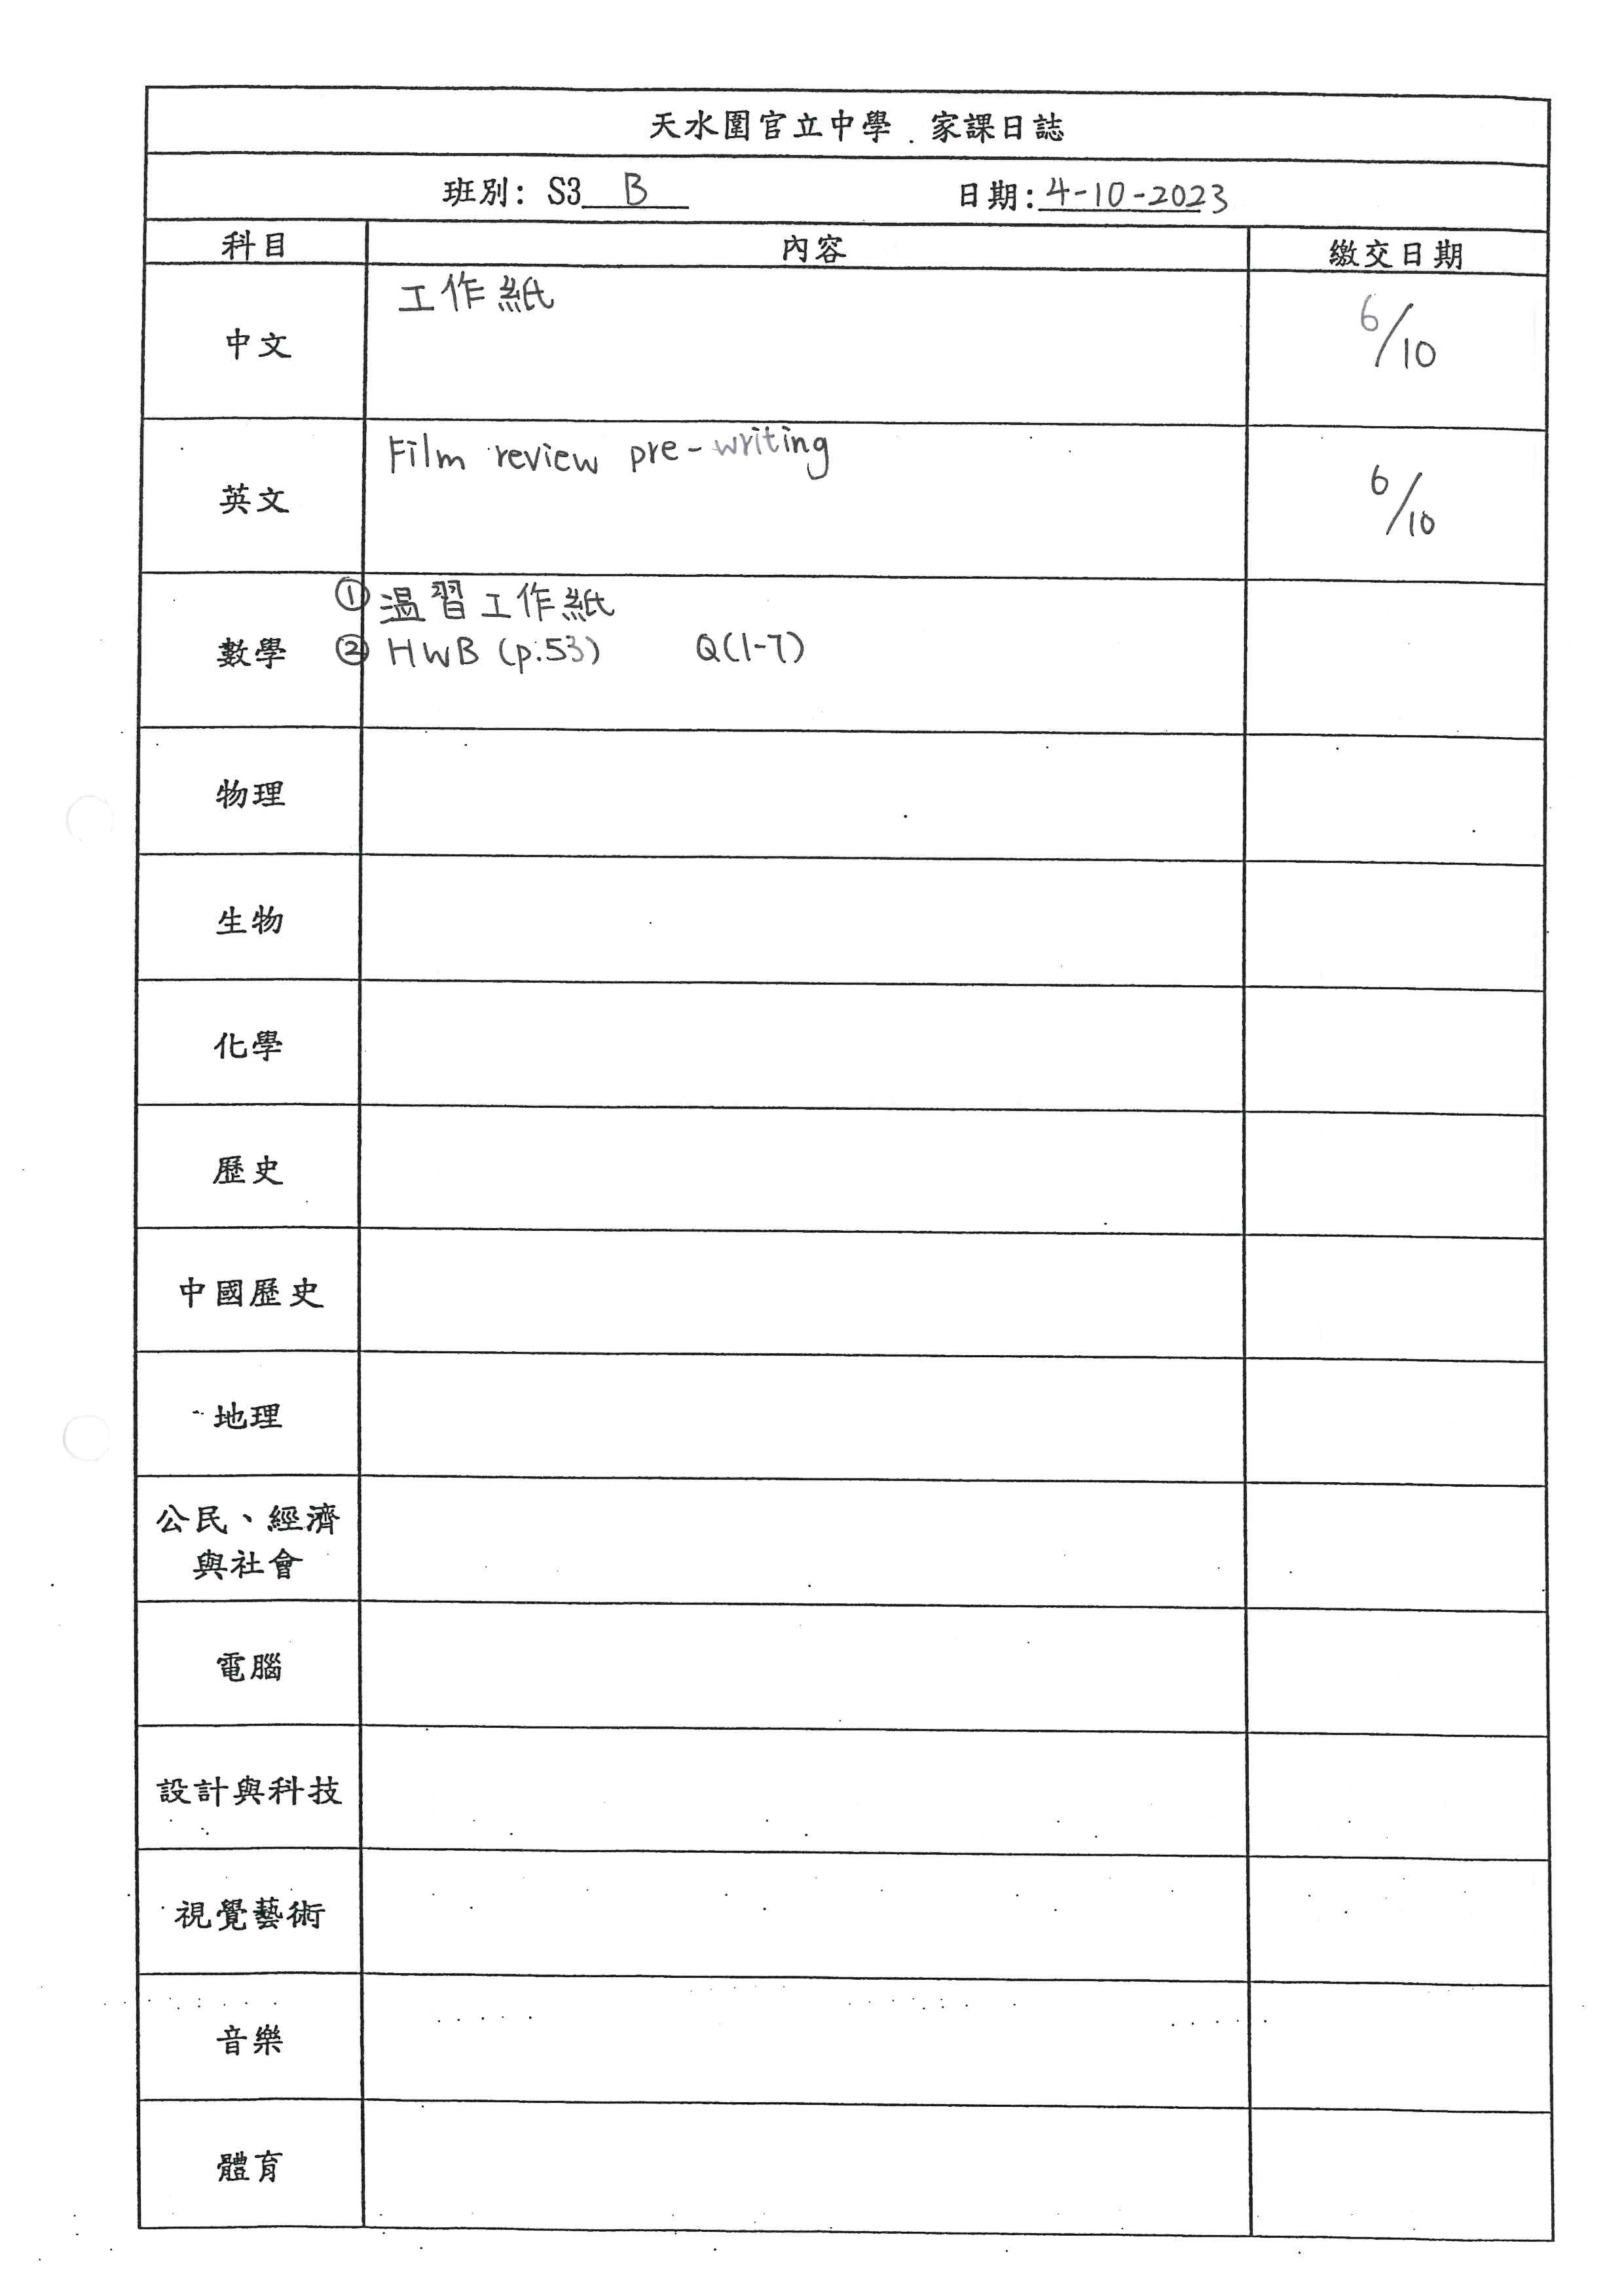 天水圍官立中學．家課日誌
班別: S3 B 日期: 4-10-2023
科目 內容 繳交日期
中文 工作紙 6/10
英文 Film review pre-writing 6/10
數學 ① 温習工作紙
② HWB (p.53) Q(1-7)
物理
生物
化學
歷史
中國歷史
地理
公民、經濟
與社會
電腦
設計與科技
視覺藝術
音樂
體育